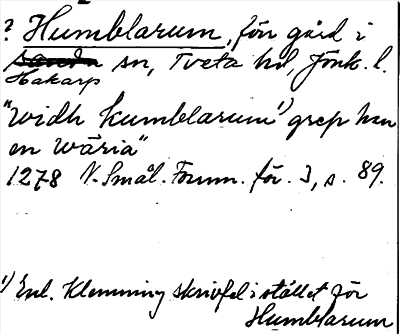 ? Humblarum, förr gård i
Hakarp sn, Tveta hd, Jönk. l.
"widh kumblarum¹) grep han
en wäria"
1278 N. Smål. Fornm. för. 3, s. 89.
¹) Enl. Klemming skrivfel i stället för
Humblarum